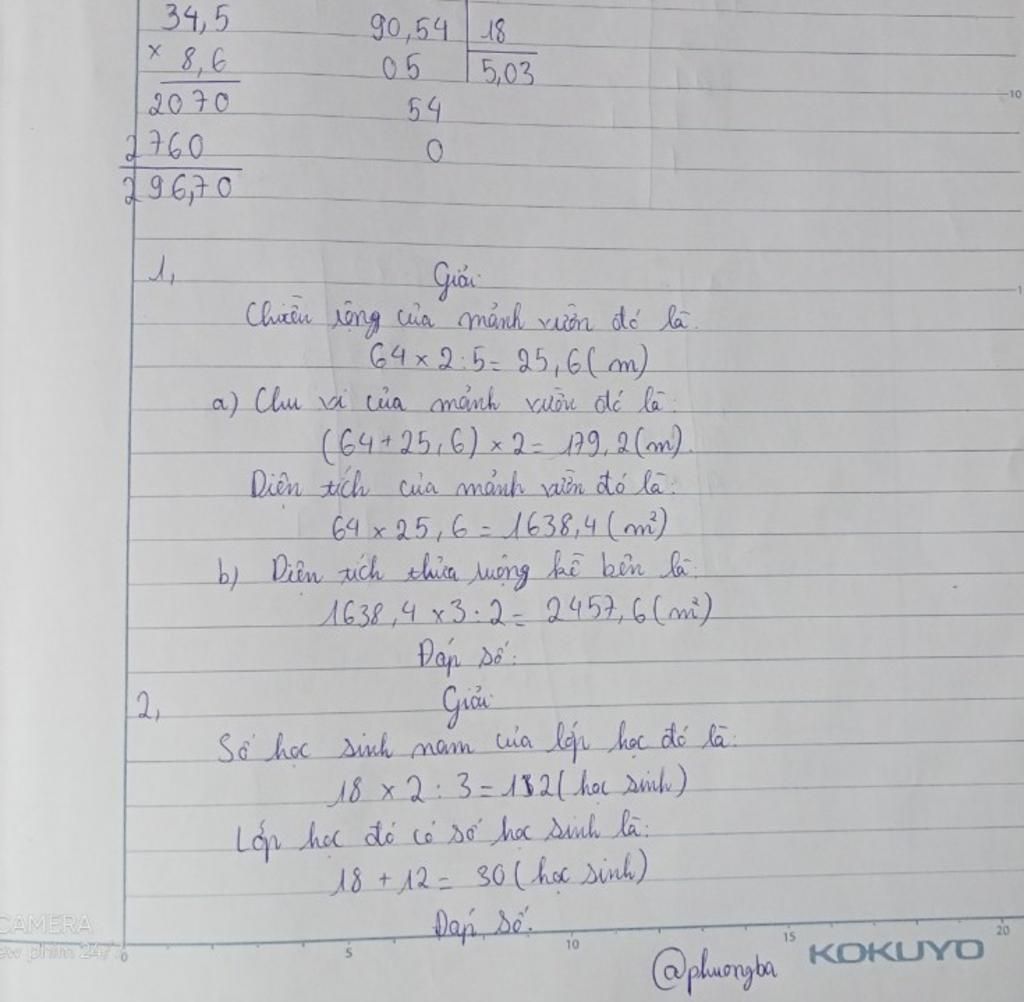 34,5
× 8,6
2070
2760
296,70
90,54 18
05 5,03
54
0
10
1
1, Giải:
Chiều rộng của mảnh vườn đó là:
64 × 2 : 5 = 25,6 (m)
a) Chu vi của mảnh vườn đó là:
(64 + 25,6) × 2 = 179,2 (m).
Diện tích của mảnh vườn đó là:
64 × 25,6 = 1638,4 (m²)
b) Diện tích thửa ruộng kế bên là:
1638,4 × 3 : 2 = 2457,6 (m²)
Đáp số:
2, Giải:
Số học sinh nam của lớp học đó là:
18 × 2 : 3 = 12 (học sinh)
Lớp học đó có số học sinh là:
18 + 12 = 30 (học sinh)
Đáp số:
CAMERA
ew phim 24/7
0 5 10 15 20
@phuongba
KOKUYO